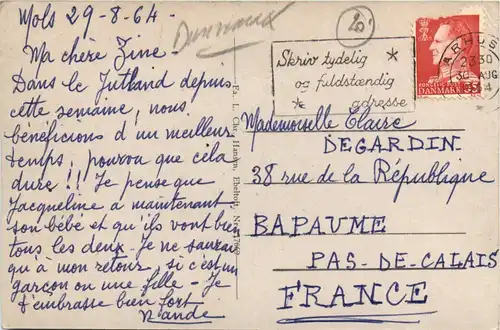 Mols 29-8-64-
Ma chère Zine-
Dans le Jutland depuis
cette semaine, nous
bénéficions d'un meilleur
temps; pourvu que cela
dure!! Je pense que
Jacqueline a maintenant
son bébé et qu'ils vont bien
tous les deux. Je ne saurai
qu'à mon retour, si c'est un
garçon ou une fille - Je
t'embrasse bien fort
20
Skriv tydelig
og fuldstændig
adresse
ARHUS
2330
AUG
DANMARK
Mademoiselle Claire
DEGARDIN.
38 rue de la République
BAPAUME
PAS-DE-CALAIS
FRANCE